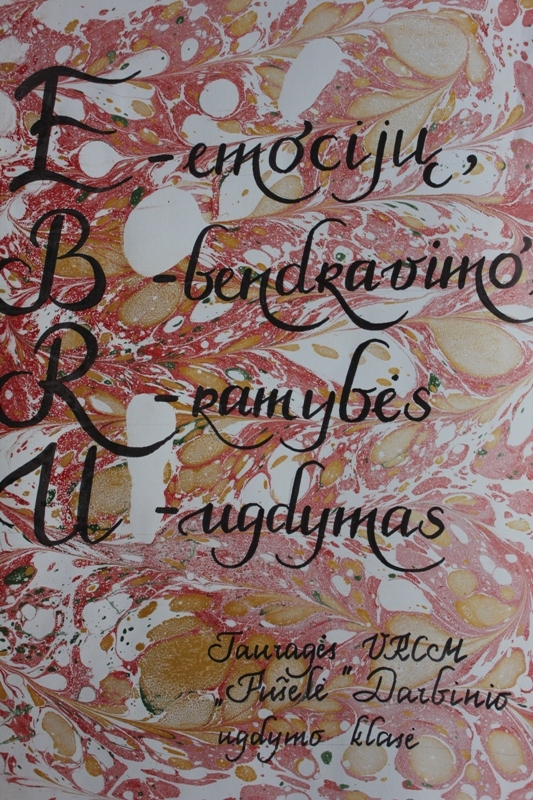 E - emocijų,
B - bendravimo,
R - ramybės
U - ugdymas
Tauragės VRCM
„Fušelė" Darbinio
ugdymo klasė